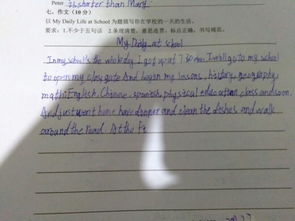 Peter is shorter than Mary.
七、作文(10分)
以 My Daily Life at School 为题描写你在学校的一天的生活。
要求:1.不少于五句话 2.条理清楚,意思连贯,标点正确,书写规范。
My Daily at school
In my school's the whole day. I got up at I will go to my school
to open my class And began my lessons, history, geography
math English, Chinese, spanish, physical education class and soon.
And just went home have dinner and clean the dishes and walk
around the road. At the